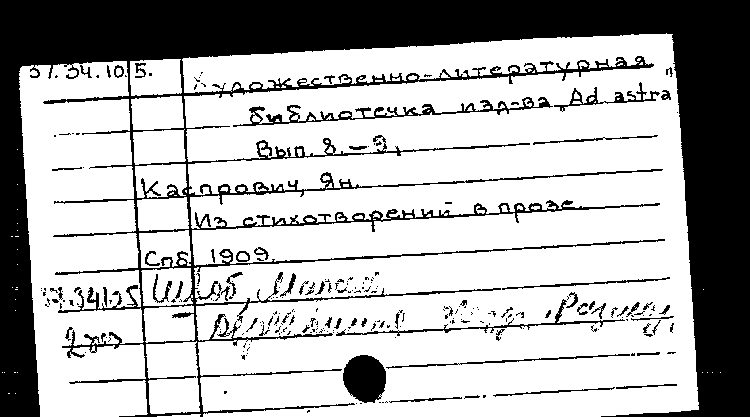 37.34.10 5. Художественно-литературная
библиотечка изд-ва „Ad astra"
Вып. 8.–9,
Каспрович, Ян.
Из стихотворений в прозе.
Спб 1909.
37.34.1.25 Швоб, Марсель
2 экз